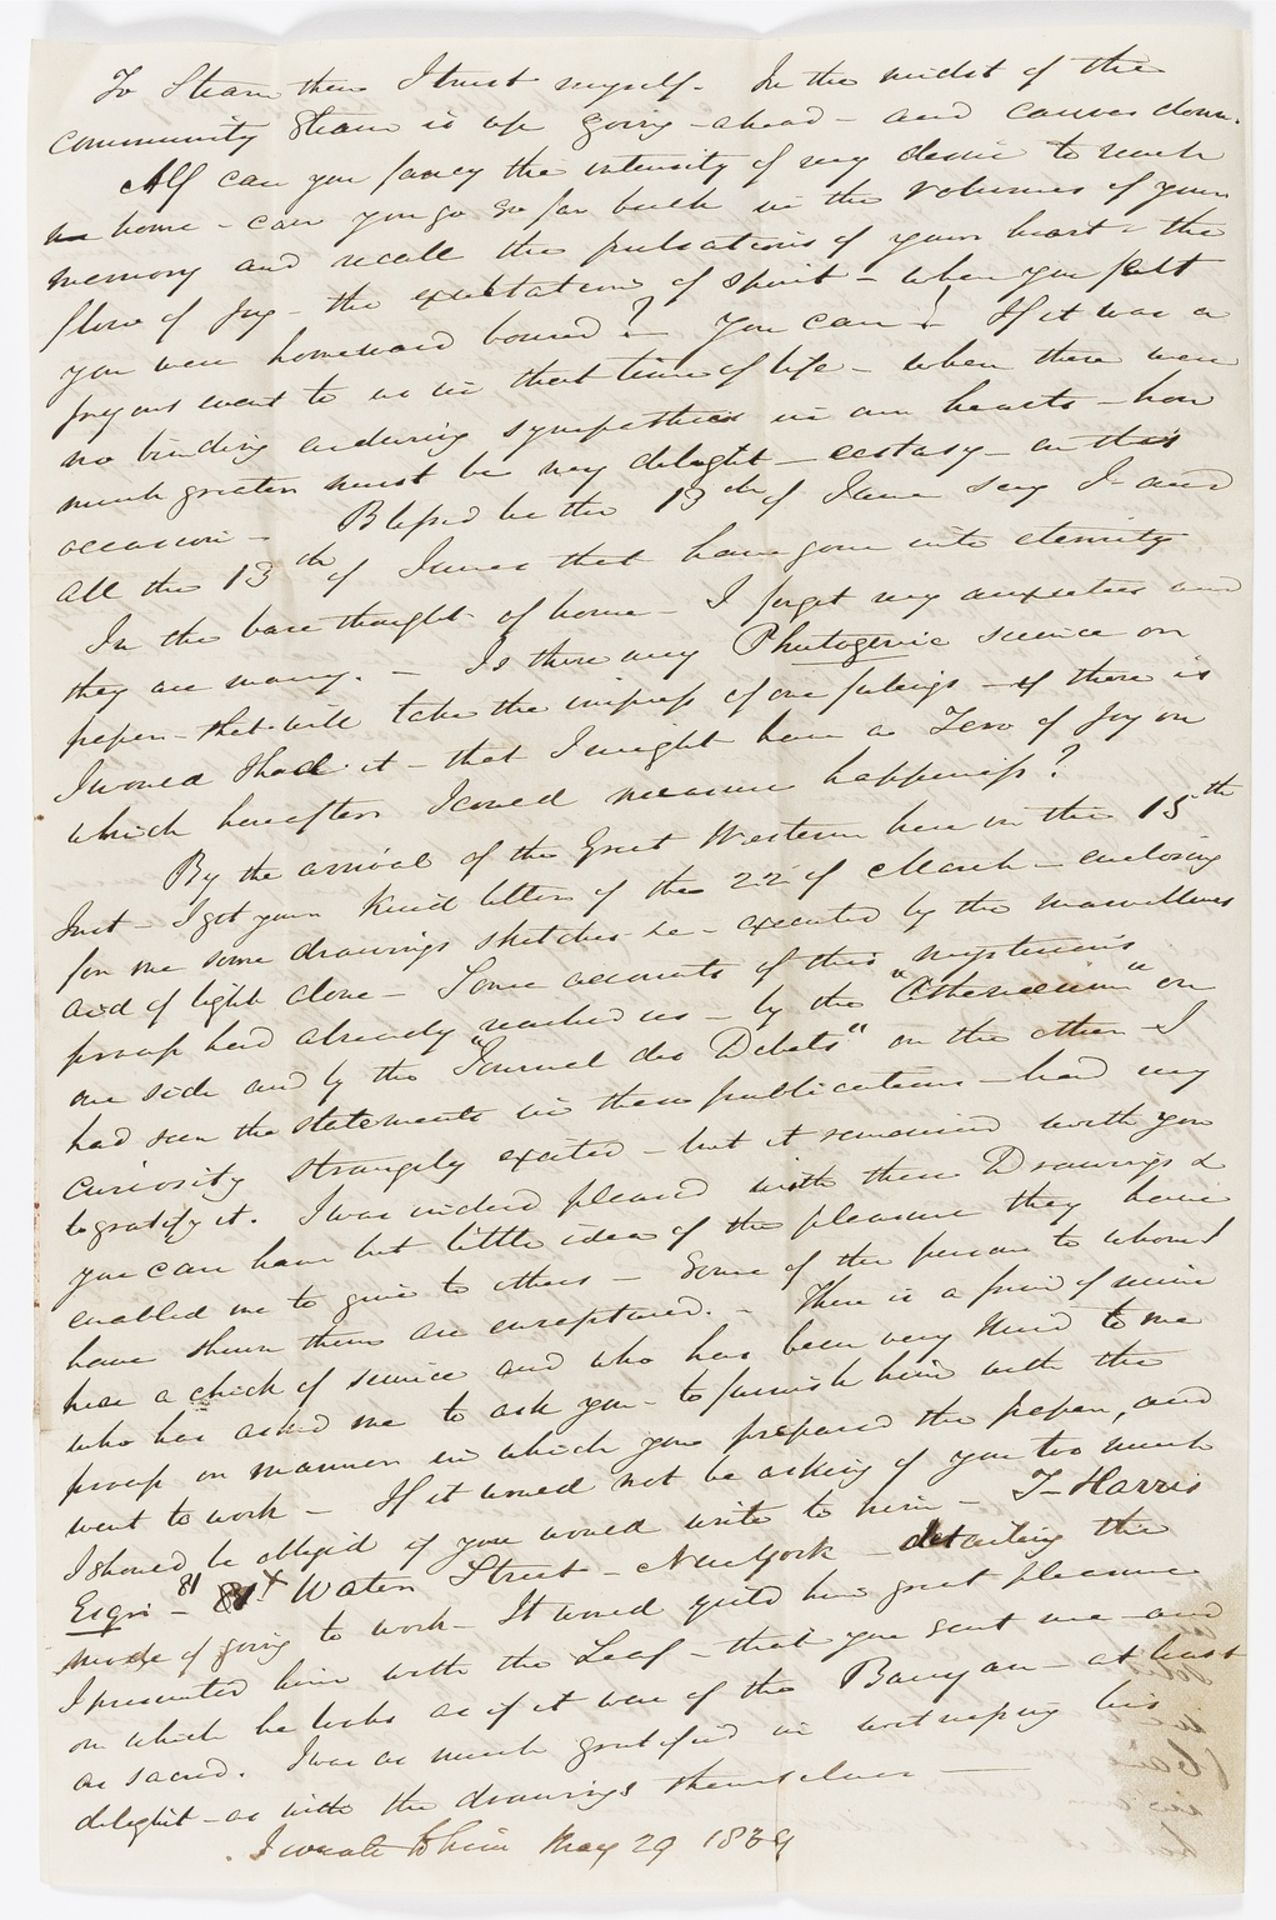 To Steam then I trust myself. In the midst of the
community Steam is up going - ahead - and canvas down.
Alf can you fancy the intensity of my desire to reach
home - can you go so far back in the volumes of your
memory and recall the pulsations of your heart - the
flow of Joy - the exultation of spirit - when you felt
you were homeward bound? - You can! If it was a
joyous event to us in that time of life - when there were
no binding enduring sympathies in our hearts - how
much greater must be my delight - ecstasy - on this
occasion - Blessed be the 13th of June say I - and
all the 13th of Junes that have gone into eternity
In the bare thought of home - I forget my anxieties and
they are many. - Is there any Photogenic science on
paper - that will take the impress of our feelings - if there is
I would I had it - that I might have a Zero of Joy on
which hereafter I could measure happiness?
By the arrival of the Great Western here on the 15th
Inst - I got your kind letter of the 22 of March - enclosing
for me some drawings sketches &c - executed by the marvellous
aid of light alone - Some accounts of this mysterious
process had already reached us - by the "Atheneum" on
one side and by the "Journal des Debats" on the other - I
had seen the statements in these publications - had my
curiosity strangely excited - but it remained with you
to gratify it. I was indeed pleased with these Drawings &
you can have but little idea of the pleasure they have
enabled me to give to others - Some of the persons to whom I
have shewn them are enraptured. - There is a friend of mine
here a chick of science and who has been very kind to me
who has asked me to ask you - to furnish him with the
process or manner in which you prepared the paper, and
went to work - If it would not be asking of you too much
I should be obliged if you would write to him - T - Harris
Esqr - 81 Water Street - New York - detailing the
mode of going to work - It would yield him great pleasure
I presented him with the Leaf - that you sent me - and
on which he looks as if it were of the Banyan - at least
as sacred. I was as much gratified in witnessing his
delight - as with the drawings themselves -
I wrote to him May 29 1839